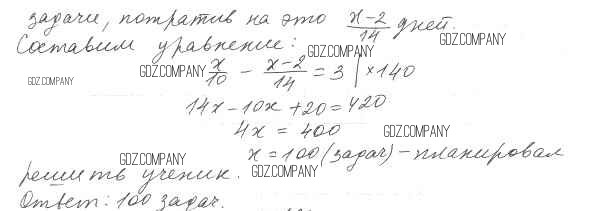 задачи, потратив на это (x-2)/14 дней.
Составим уравнение:
GDZ.COMPANY
GDZ.COMPANY
GDZ.COMPANY
GDZ.COMPANY
x/10 - (x-2)/14 = 3 | ×140
14x - 10x + 20 = 420
4x = 400
GDZ.COMPANY
GDZ.COMPANY
x = 100 (задач) - планировал
решить ученик.
GDZ.COMPANY
Ответ: 100 задач.